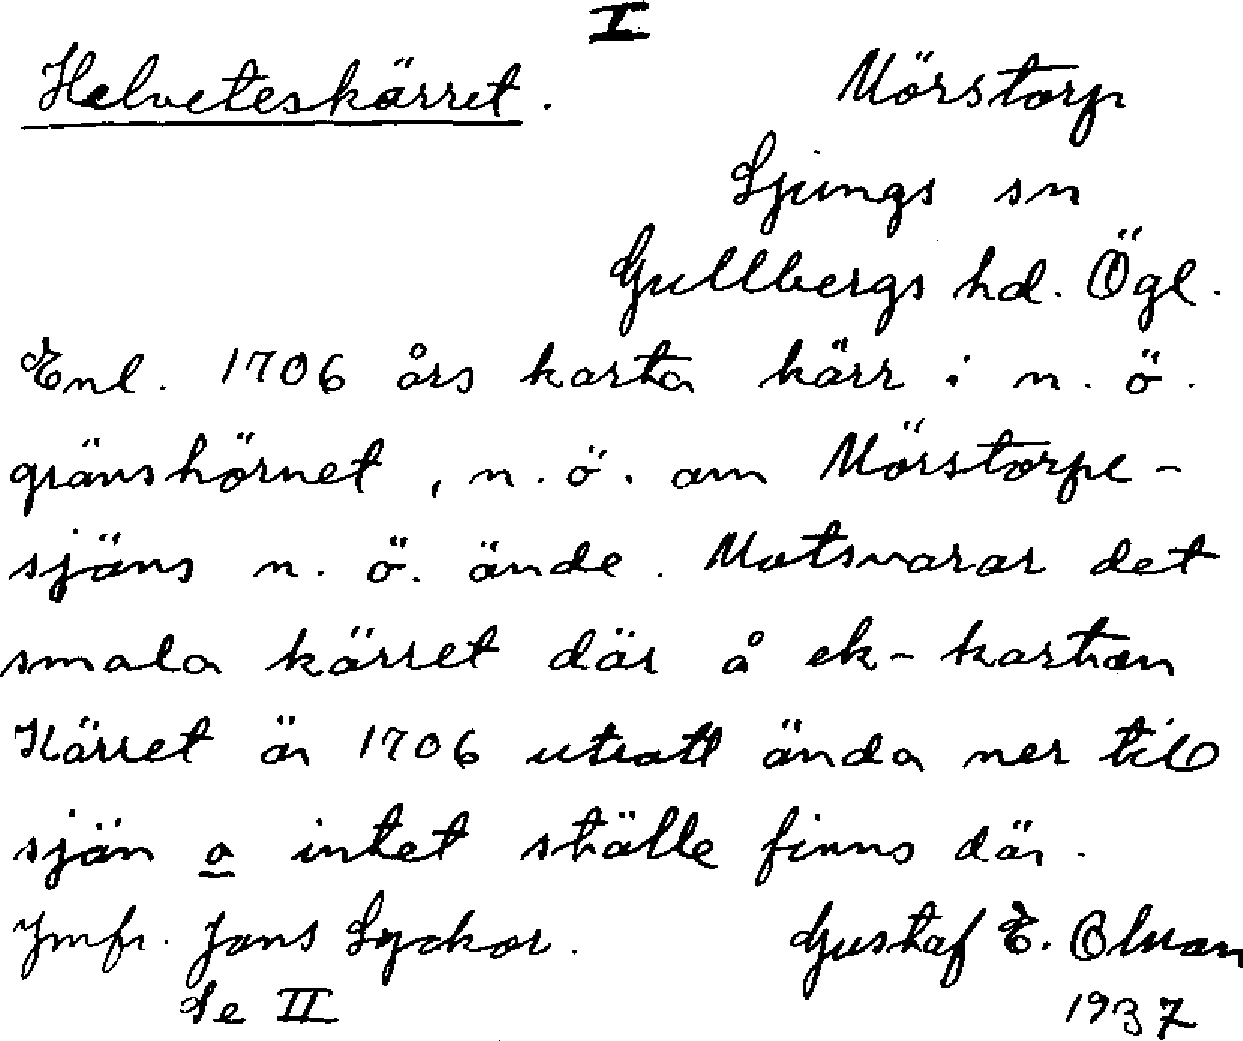 I
Helveteskärret. Mörstorp
Ljungs sn
Gullbergs hd. Ögl.
Enl. 1706 års karta kärr i n. ö.
gränshörnet, n. ö. om Mörstorpe-
sjöns n. ö. ände. Motsvarar det
smala kärret där å ek-kartan
Kärret är 1706 utsatt ända ner till
sjön o intet ställe finns där.
Jmfr. Jons Lyckor. Gustaf E. Olman
Se II 1937